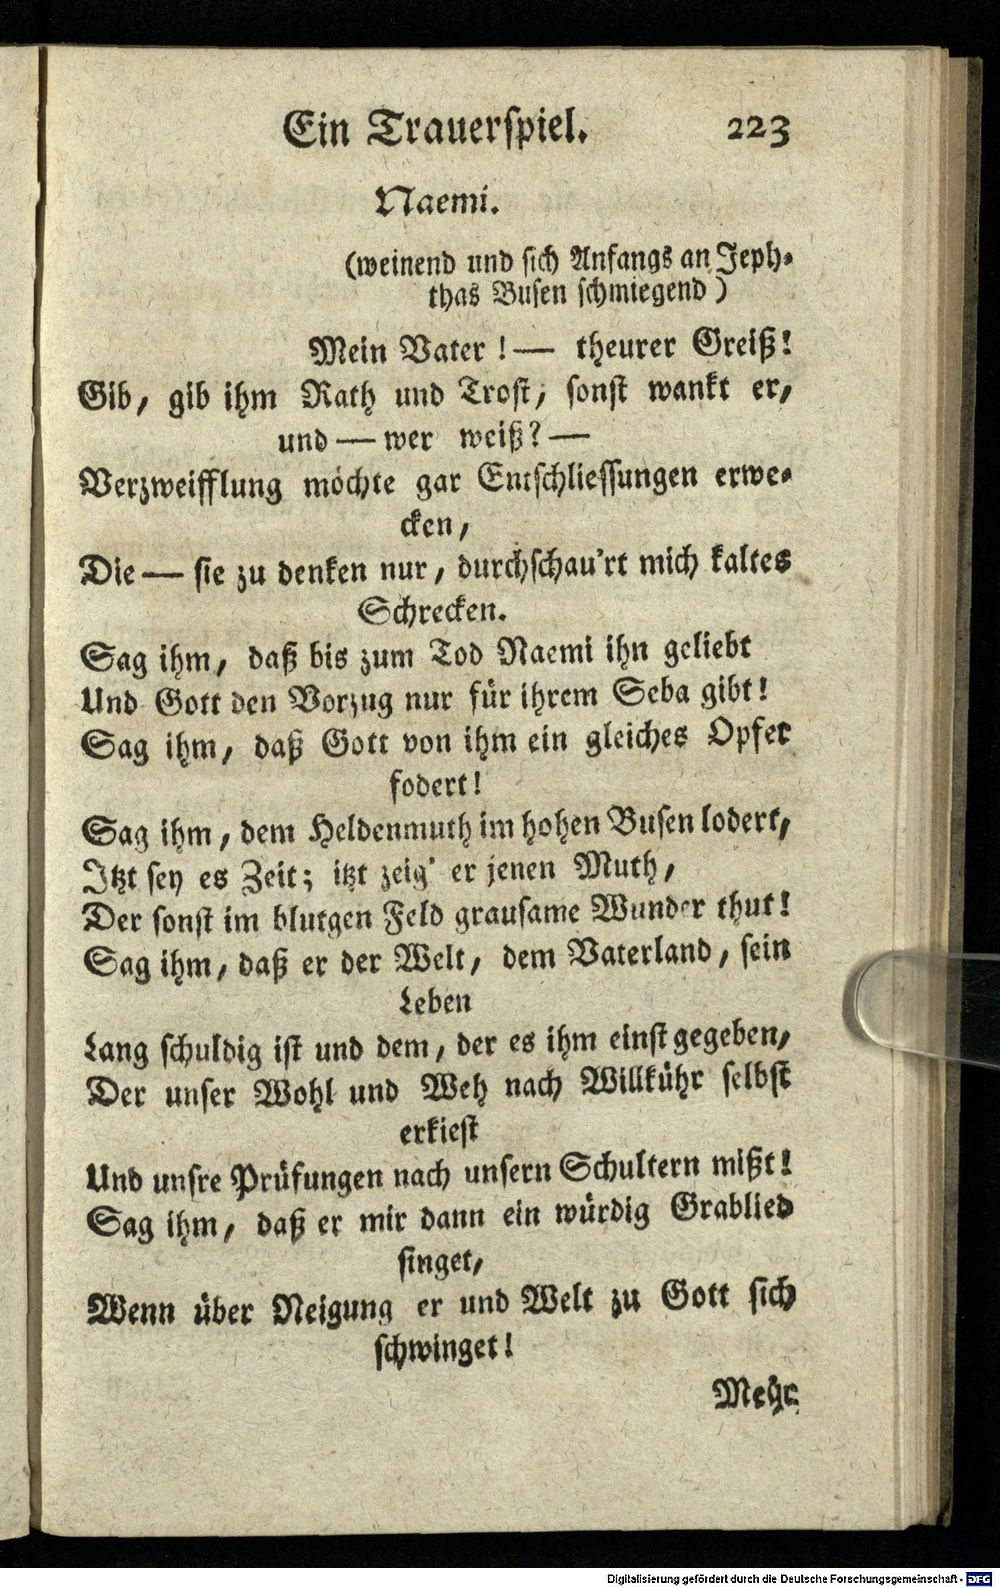 Ein Trauerspiel. 223
Naemi.
(weinend und sich Anfangs an Jeph-
thas Busen schmiegend)
Mein Vater! — theurer Greiß!
Gib, gib ihm Rath und Trost, sonst wankt er,
und — wer weiß? —
Verzweifflung möchte gar Entschliessungen erwe-
cken,
Die — sie zu denken nur, durchschau'rt mich kaltes
Schrecken.
Sag ihm, daß bis zum Tod Naemi ihn geliebt
Und Gott den Vorzug nur für ihrem Seba gibt!
Sag ihm, daß Gott von ihm ein gleiches Opfer
fodert!
Sag ihm, dem Heldenmuth im hohen Busen lodert,
Itzt sey es Zeit; itzt zeig' er jenen Muth,
Der sonst im blutgen Feld grausame Wunder thut!
Sag ihm, daß er der Welt, dem Vaterland, sein
Leben
Lang schuldig ist und dem, der es ihm einst gegeben,
Der unser Wohl und Weh nach Willkühr selbst
erkiest
Und unsre Prüfungen nach unsern Schultern mißt!
Sag ihm, daß er mir dann ein würdig Grablied
singet,
Wenn über Neigung er und Welt zu Gott sich
schwinget!
Mehr
Digitalisierung gefördert durch die Deutsche Forschungsgemeinschaft - DFG